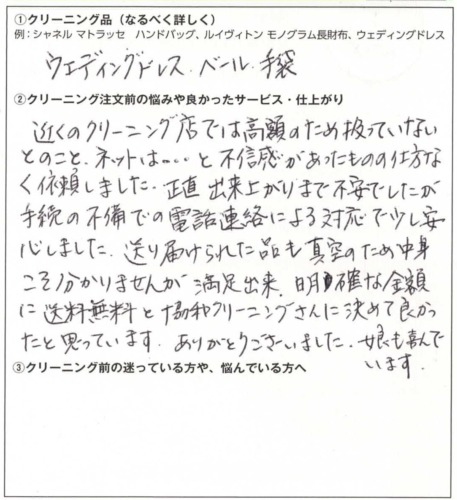 ①クリーニング品（なるべく詳しく）
例：シャネル マトラッセ　ハンドバッグ、ルイヴィトン モノグラム長財布、ウェディングドレス
ウェディングドレス．ベール．手袋
②クリーニング注文前の悩みや良かったサービス・仕上がり
近くのクリーニング店では高額のため扱っていない
とのこと．ネットは…．と不信感があったものの仕方な
く依頼しました．正直 出来上がりまで不安でしたが
手続の不備での電話連絡による対応で少し安
心しました．送り届けられた品も真空のため中身
こそ分かりませんが 満足出来、明確な金額
に 送料無料と協和クリーニングさんに決めて良かっ
たと思っています．ありがとうございました．娘も喜んで
います．
③クリーニング前の迷っている方や、悩んでいる方へ